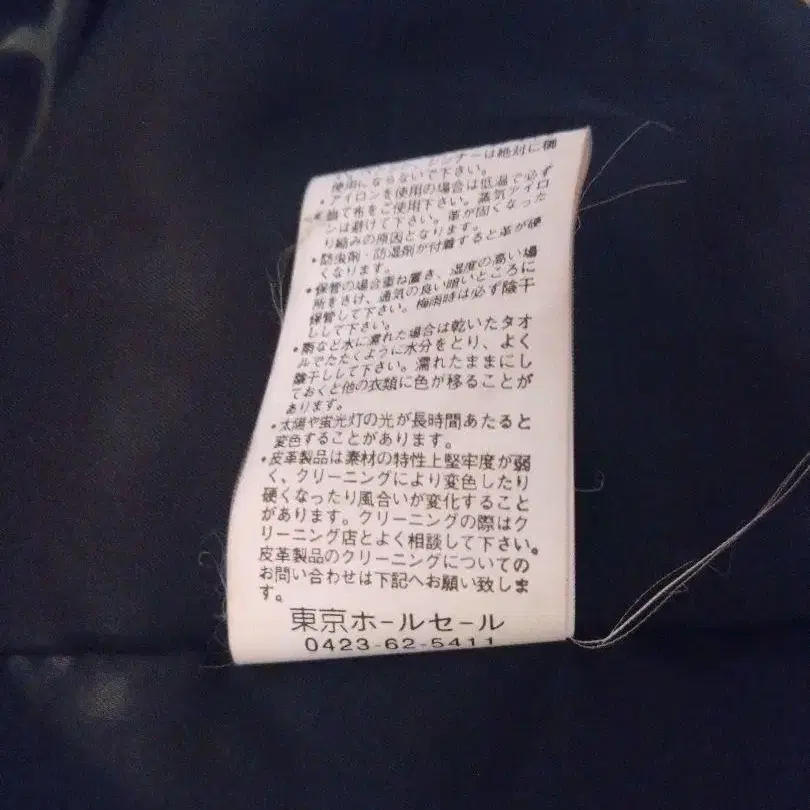 シンナーは絶対に御
使用にならないで下さい。
・アイロンを使用の場合は低温で必ず
当て布をご使用下さい。蒸気アイロ
ンは避けて下さい。革が固くなった
り縮みの原因となります。
・防虫剤・防湿剤が付着すると革が硬
くなります。
・保管の場合重ね置き、湿度の高い場
所をさけ、通気の良い暗いところに
保管して下さい。梅雨時は必ず陰干
しして下さい。
・雨など水に濡れた場合は乾いたタオ
ルでたたくように水分をとり、よく
陰干しして下さい。濡れたままにし
ておくと他の衣類に色が移ることが
あります。
・太陽や蛍光灯の光が長時間あたると
変色することがあります。
・皮革製品は素材の特性上堅牢度が弱
く、クリーニングにより変色したり
硬くなったり風合いが変化すること
があります。クリーニングの際はク
リーニング店とよく相談して下さい。
皮革製品のクリーニングについての
お問い合わせは下記へお願い致しま
す。
東京ホールセール
0423-62-5411